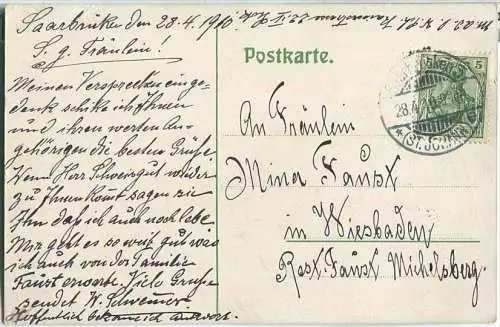 Saarbrücken den 28.4.1910.
S. g. Fräulein!
Meinen Versprechen einge-
denk schike ich Ihnen
und ihren werten An-
gehörigen die besten Grüße
Wenn Herr Schweisgut wieder
zu Ihnen komt sagen sie
Ihm daß ich auch noch lebe.
Mir geht es so weit gut was
ich auch von der Familie
Faust erwarte. Viele Grüße
sendet W. Schwemer
Hoffentlich bekomme ich antwort.
Postkarte.
5
28.4.10
*(ST. JOHANN)
An Fräulein
Mina Faust
in Wiesbaden
Rest. Faust Michelsberg.